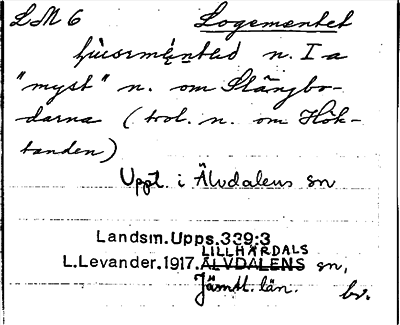 LM 6 Logementet
n. I a
"myst" n. om Stängbo-
darna (trol. n. om Hök-
tanden)
Uppt. i Älvdalens sn
Landsm.Upps.339:3
LILLHÄRDALS
L.Levander.1917. ÄLVDALENS sn,
Jämtl. län.
bv.